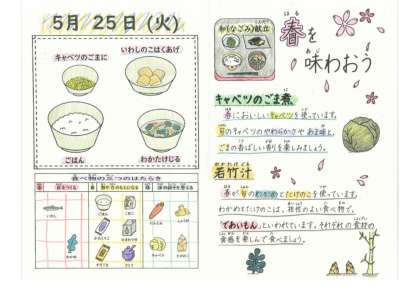 5月 25日 (火)
キャベツのごまに
いわしのこはくあげ
ごはん
わかたけじる
食べ物の三つのはたらき
和(なごみ)献立
春を
はる
味わおう
あじ
キャベツのごま煮
春においしいキャベツを使っています。
旬のキャベツのやわらかさやあま味と、
ごまの香ばしい香りを楽しみましょう。
わかたけじる
若竹汁
春が旬のわかめとたけのこを使っています。
わかめとたけのこは、相性のよい食べ物で、
「であいもん」といわれています。それぞれの食材の
食感を楽しんで食べましょう。